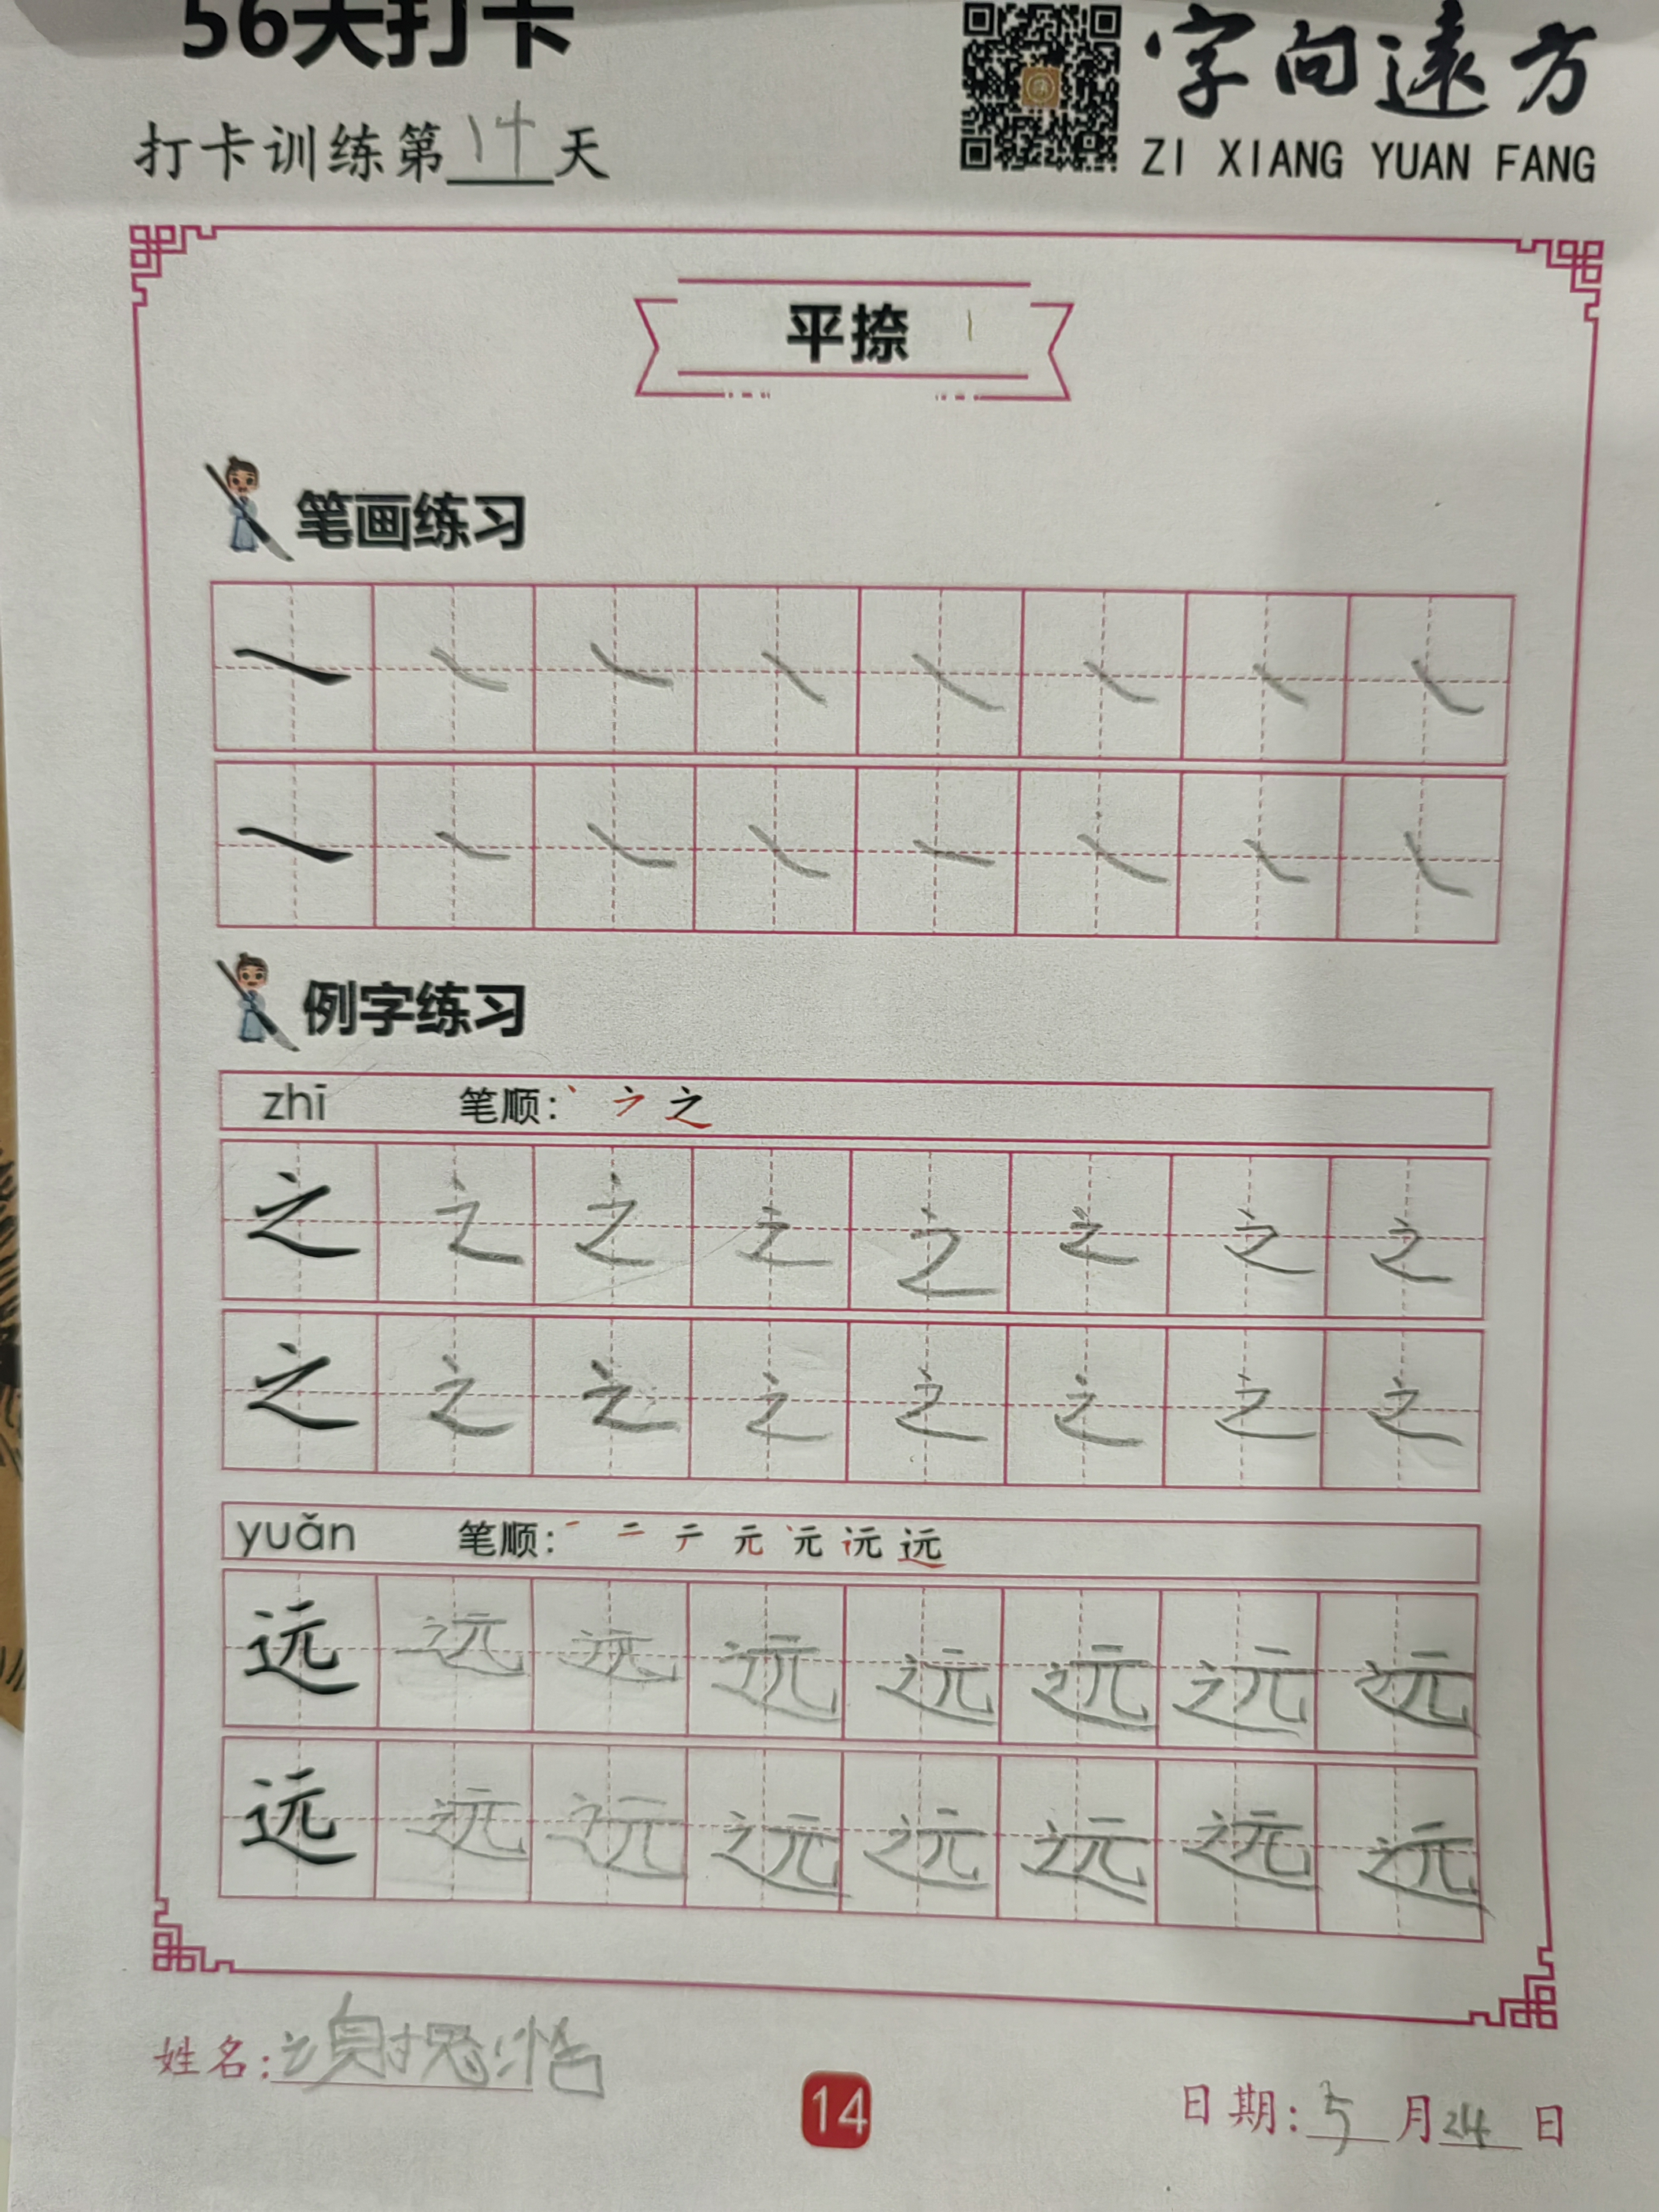 56天打卡
打卡训练第14天
字向遠方
ZI XIANG YUAN FANG
平捺
笔画练习
例字练习
zhī 笔顺:丶 之
之 之 之 之 之 之 之 之
之 之 之 之 之 之 之 之
yuǎn 笔顺:一 二 元 元 远
远 远 远 远 远 远 远 远
远 远 远 远 远 远 远 远
姓名:
14
日期:5月24日